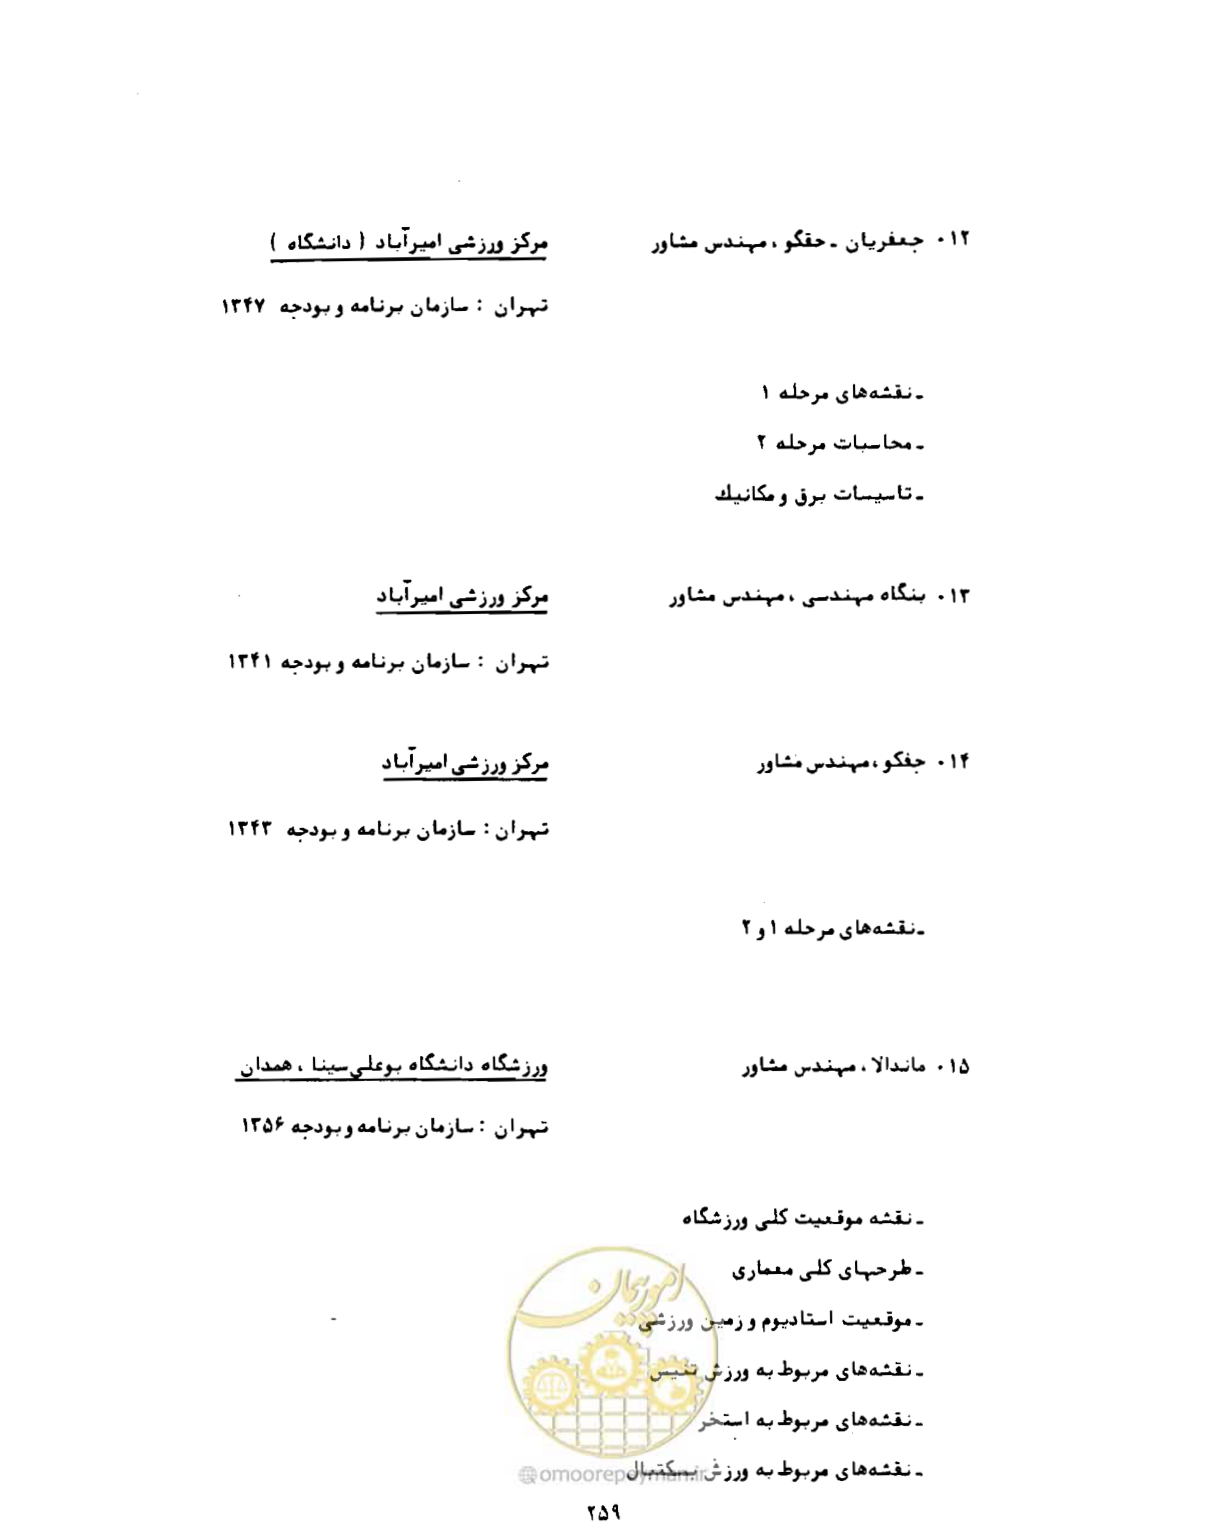 ۱۲۰ جعفریان ـ حقگو ، مهندس مشاور مرکز ورزشی امیرآباد ( دانشگاه )
تهران : سازمان برنامه و بودجه ۱۳۴۷
ـ نقشه‌های مرحله ۱
ـ محاسبات مرحله ۲
ـ تاسیسات برق و مکانیك
۱۳۰ بنگاه مهندسی ، مهندس مشاور مرکز ورزشی امیرآباد
تهران : سازمان برنامه و بودجه ۱۳۴۱
۱۴۰ جفکو ، مهندس مشاور مرکز ورزشی امیرآباد
تهران : سازمان برنامه و بودجه ۱۳۴۳
ـ نقشه‌های مرحله ۱ و ۲
۱۵۰ ماندالا ، مهندس مشاور ورزشگاه دانشگاه بوعلی‌سینا ، همدان
تهران : سازمان برنامه و بودجه ۱۳۵۶
ـ نقشه موقعیت کلی ورزشگاه
ـ طرحهای کلی معماری
ـ موقعیت استادیوم و زمین ورزشی
ـ نقشه‌های مربوط به ورزش تنیس
ـ نقشه‌های مربوط به استخر
ـ نقشه‌های مربوط به ورزش بسکتبال
امور پیمان
@omoorepeyman.ir
۲۵۹